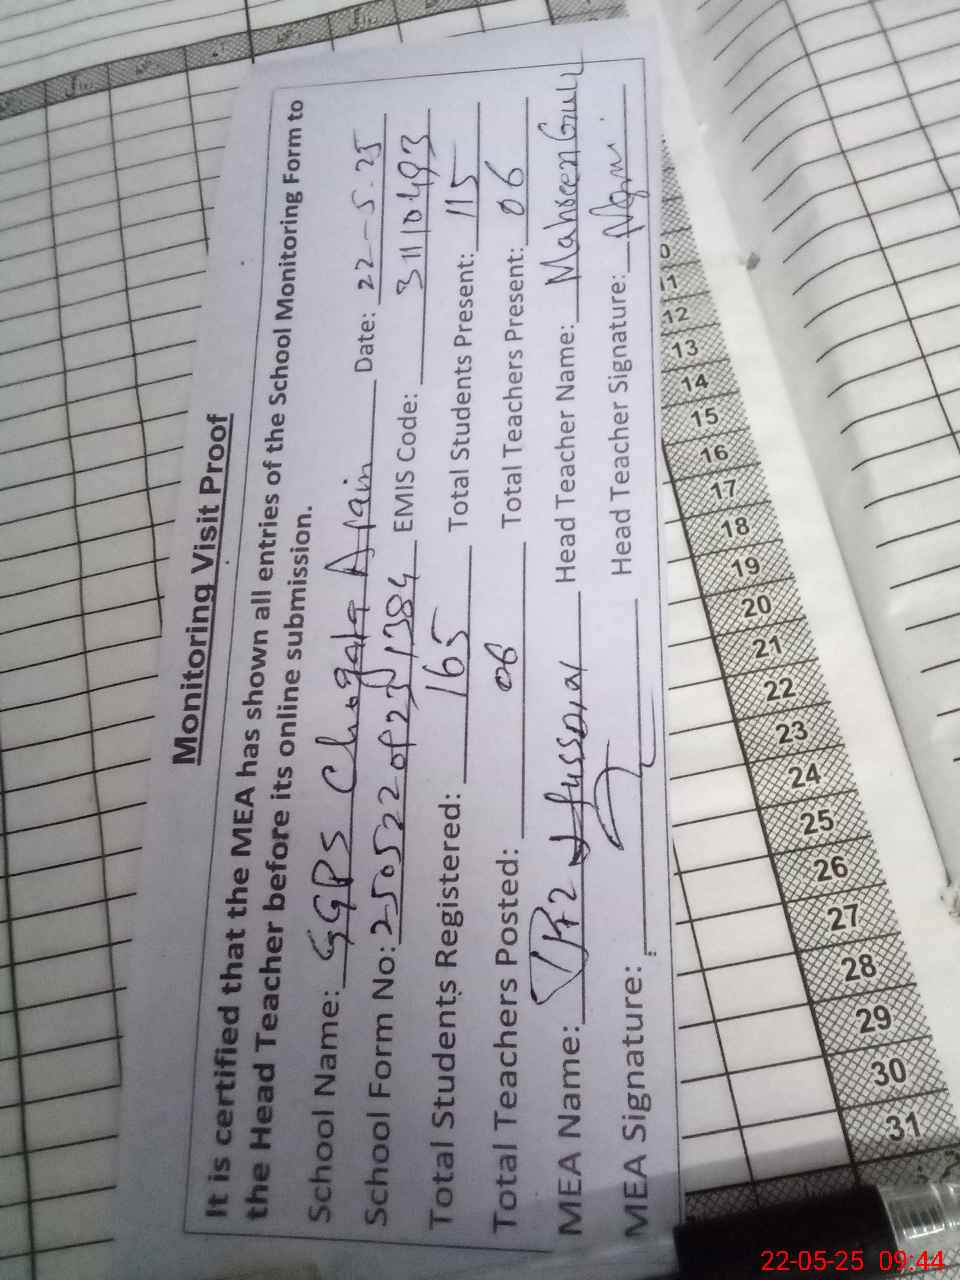 Monitoring Visit Proof
It is certified that the MEA has shown all entries of the School Monitoring Form to
the Head Teacher before its online submission.
School Name: GGPS Chogala Arain Date: 22-5-25
School Form No: EMIS Code: 31110493
Total Students Registered: 165 Total Students Present: 115
Total Teachers Posted: 06 Total Teachers Present: 06
MEA Name: Head Teacher Name: Mahseen Gul
MEA Signature: Head Teacher Signature:
0
11
12
13
14
15
16
17
18
19
20
21
22
23
24
25
26
27
28
29
30
31
22-05-25 09:44